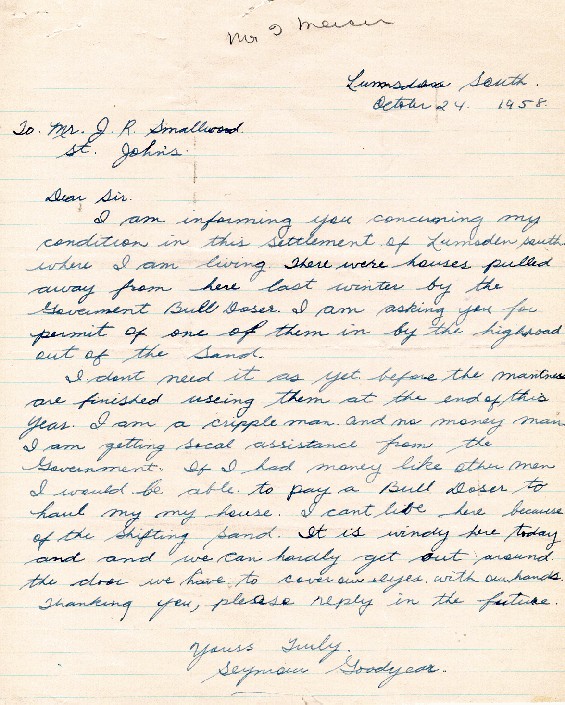 Mr I Mercer
Lumsden South.
October 24. 1958.
To. Mr. J. R. Smallwood.
St. John's.
Dear Sir.
I am informing you concerning my
condition in this Settlement of Lumsden south
where I am living. There were houses pulled
away from here last winter by the
Goverment Bull Doser. I am asking you for
permit of one of them in by the highroad
out of the Sand.
I dont need it as yet before the
are finished useing them at the end of this
year. I am a cripple man and no money man
I am getting socal assistance from the
Government. If I had money like other men
I would be able to pay a Bull Doser to
haul my my house. I cant libe here because
of the Shifting Sand. It is windy here today
and and we can hardly get out around
the door we have to cover our eyes with our hands.
Thanking you, please reply in the future.
Yours Truly.
Seymour Goodyear.